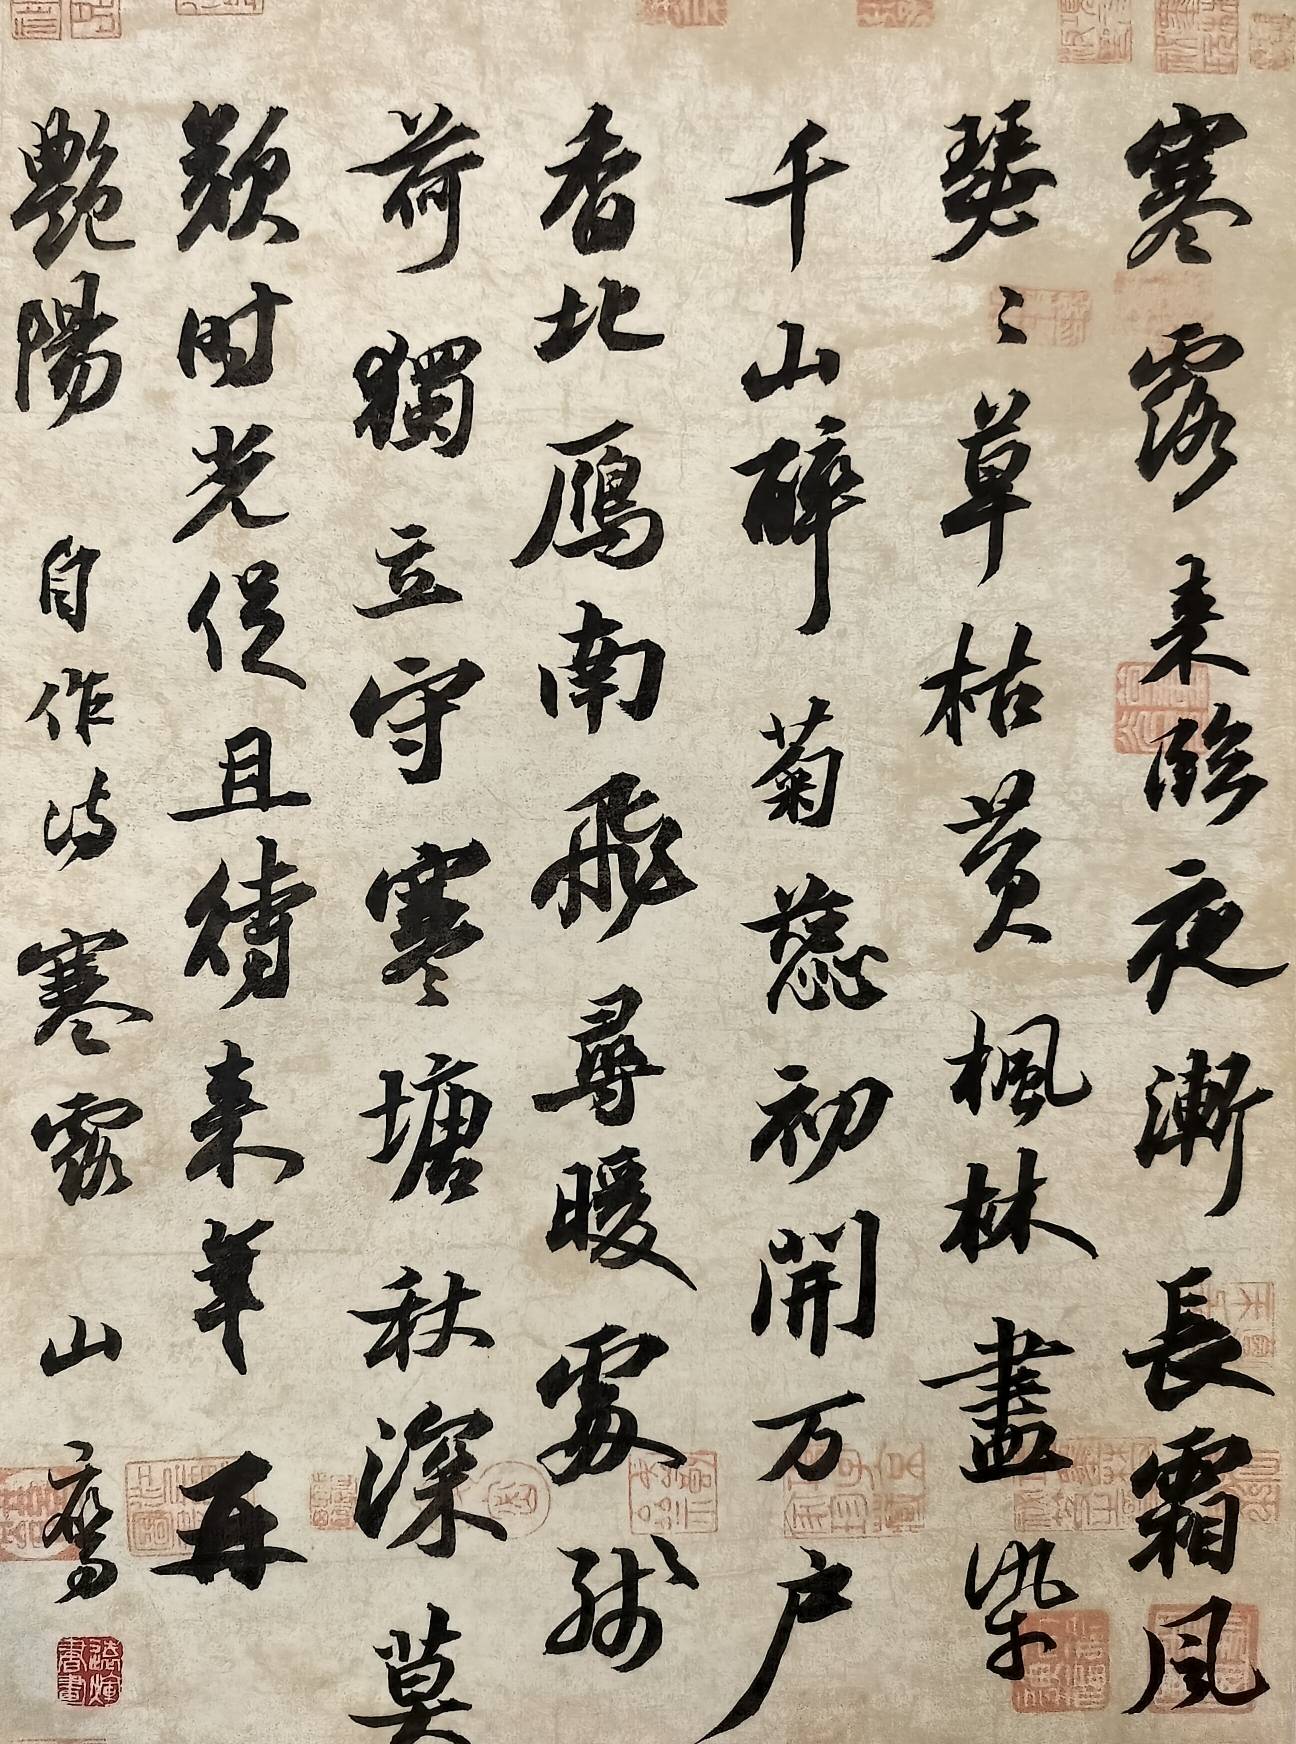 寒露来臨夜漸長霜风
瑟々草枯黄楓林盡染
千山醉菊蕊初開万户
香北鴈南飛尋暖處残
荷獨立守寒塘秋深莫
歎时光促且待来年再
艷陽 自作诗 寒露 山鹰